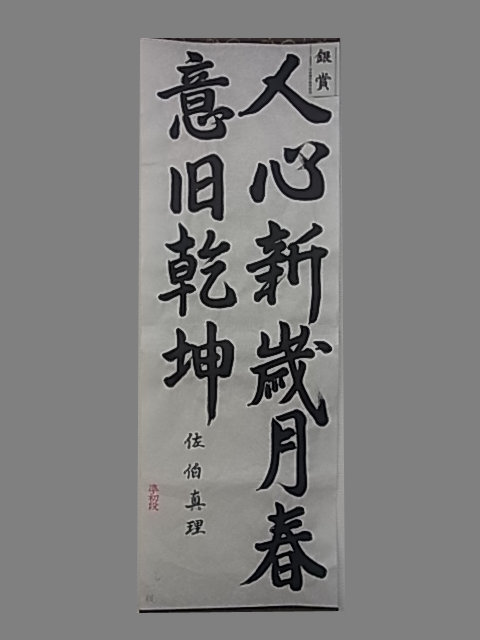 銀賞
人心新歳月春
意旧乾坤
佐伯真理
準初段